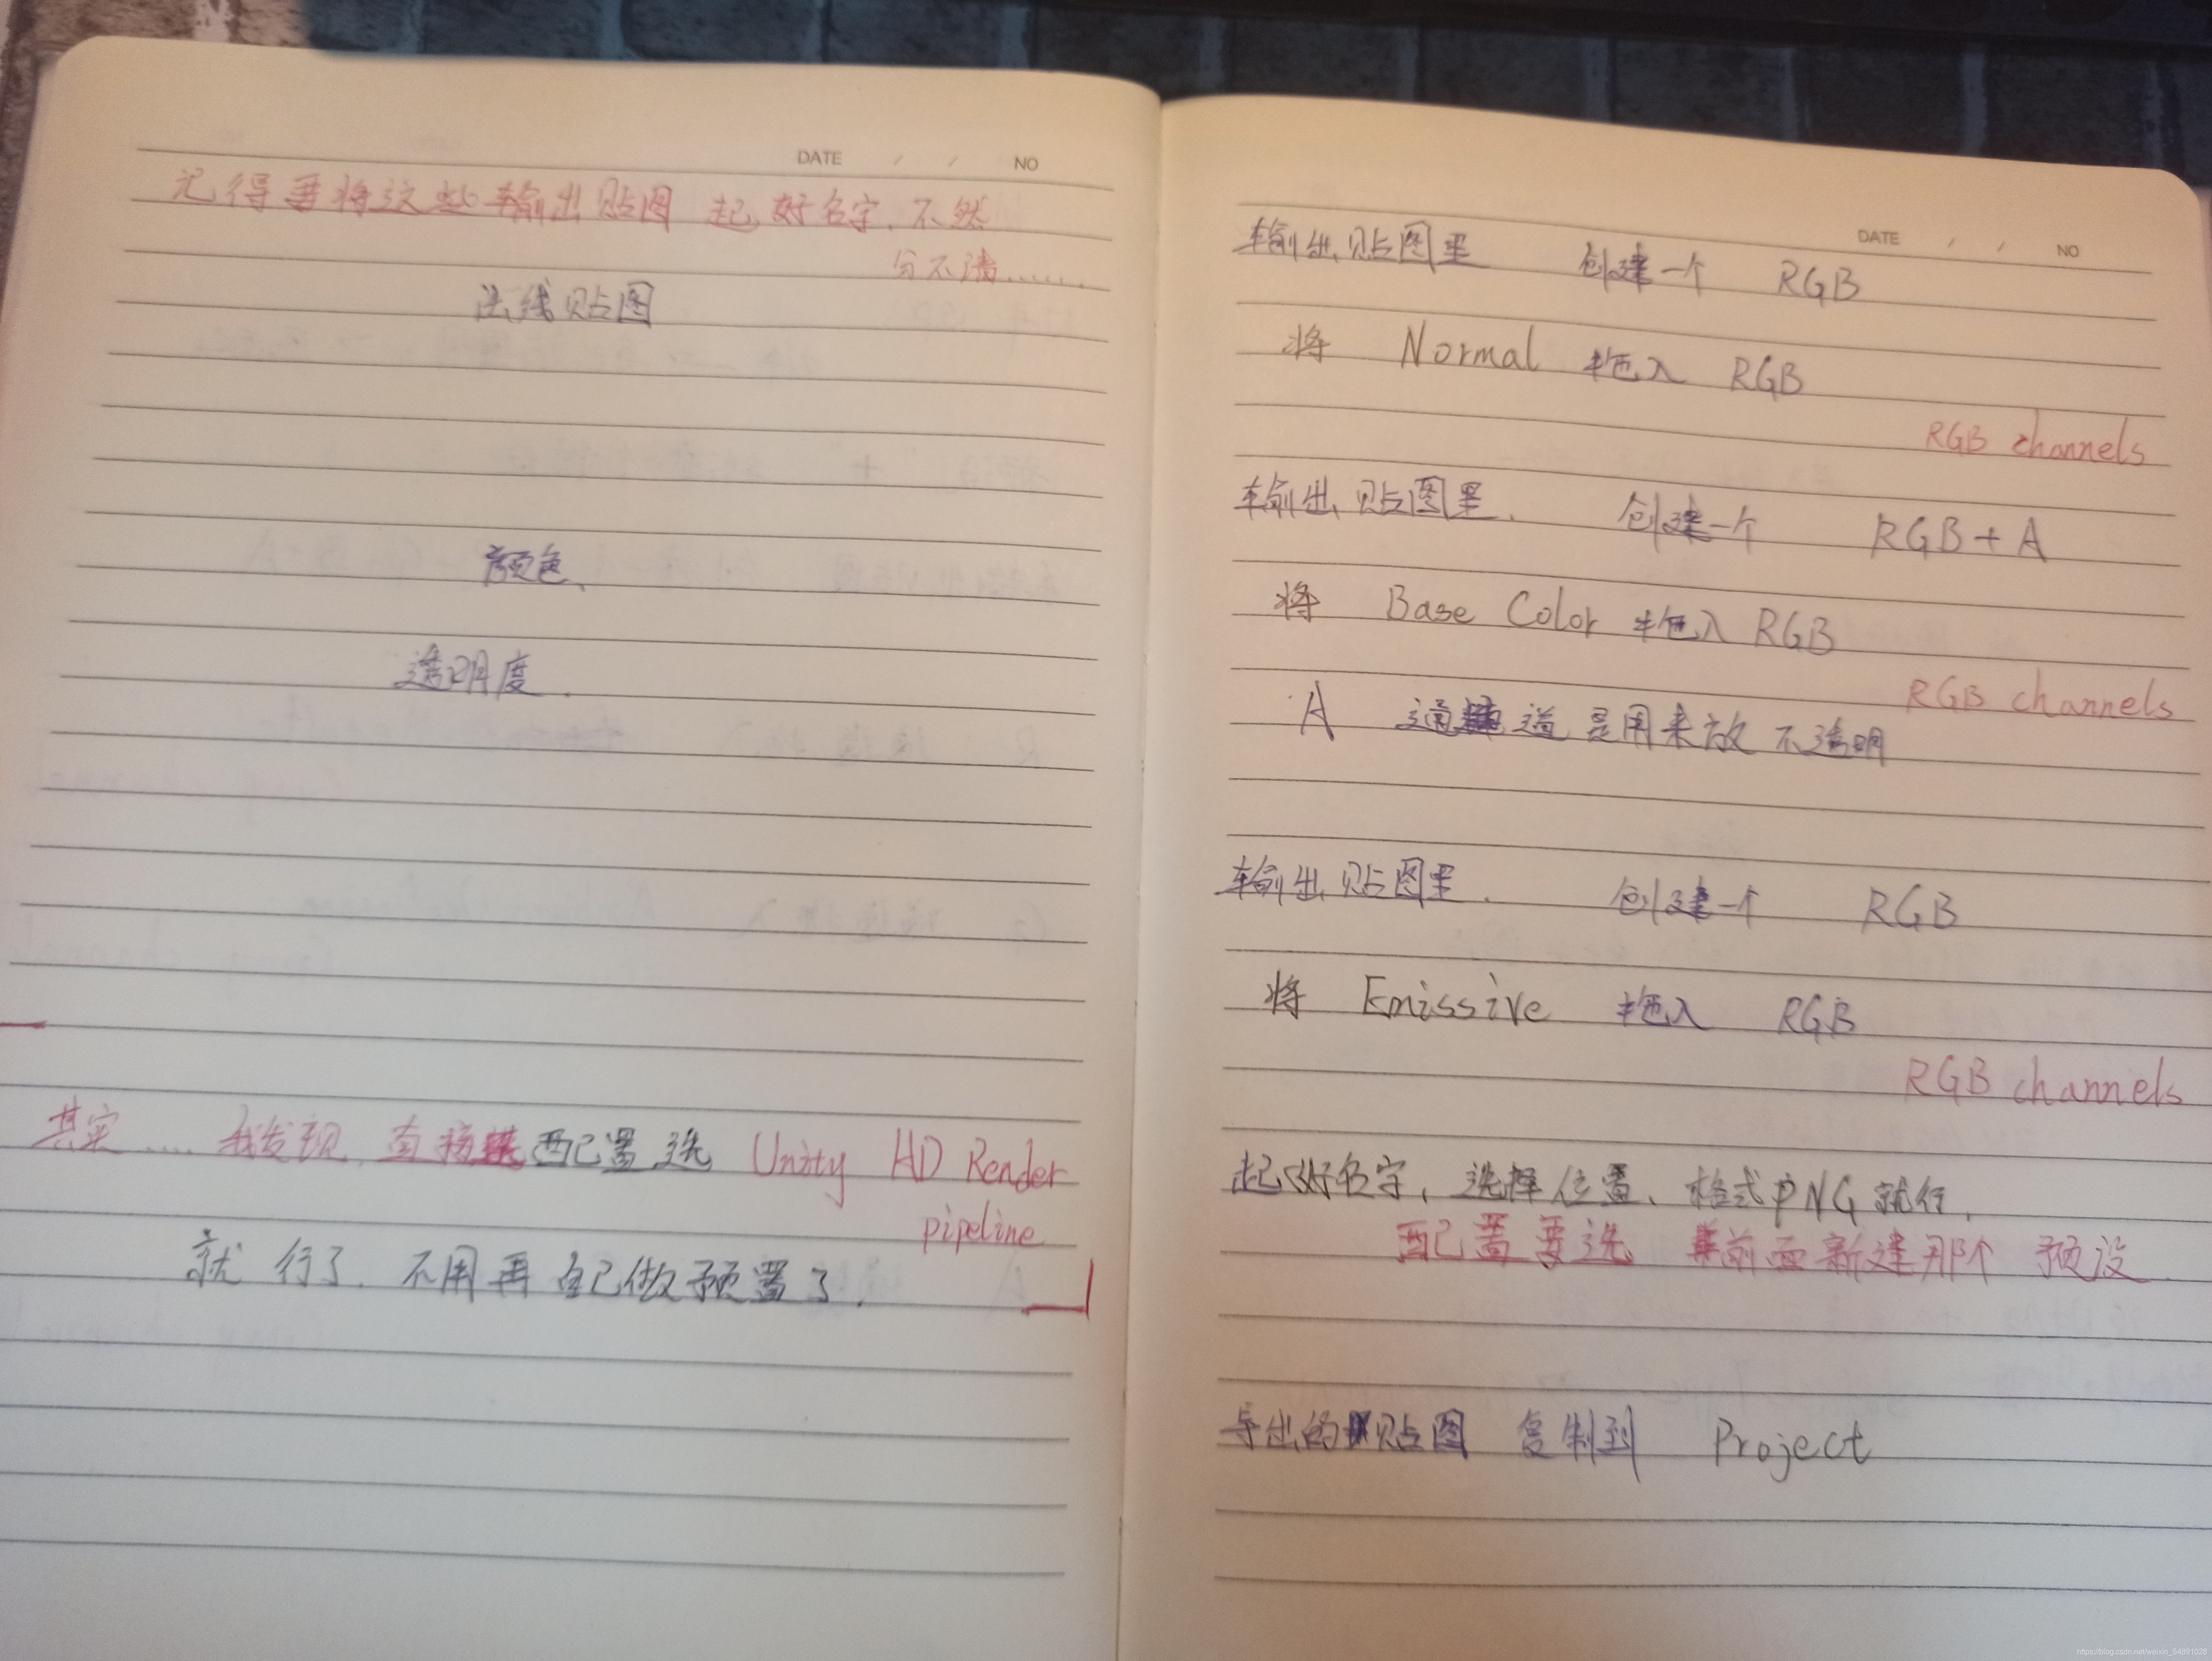 DATE / / NO
记得要将这些输出贴图 起好名字,不然
分不清......
法线贴图
颜色、
透明度.
其实.... 我发现,直接 配置选 Unity HD Render
pipeline
就行了.不用再自己做预置了.
DATE / / NO
输出贴图里 创建一个 RGB
将 Normal 拖入 RGB
RGB channels
输出贴图里. 创建一个 RGB+A
将 Base Color 拖入 RGB
RGB channels
A 通道是用来放不透明
输出贴图里. 创建一个 RGB
将 Emissive 拖入 RGB
RGB channels
起好名字,选择位置、格式PNG就行,
配置要选 前面新建那个 预设.
导出的贴图 复制到 Project
https://blog.csdn.net/weixin_54891028